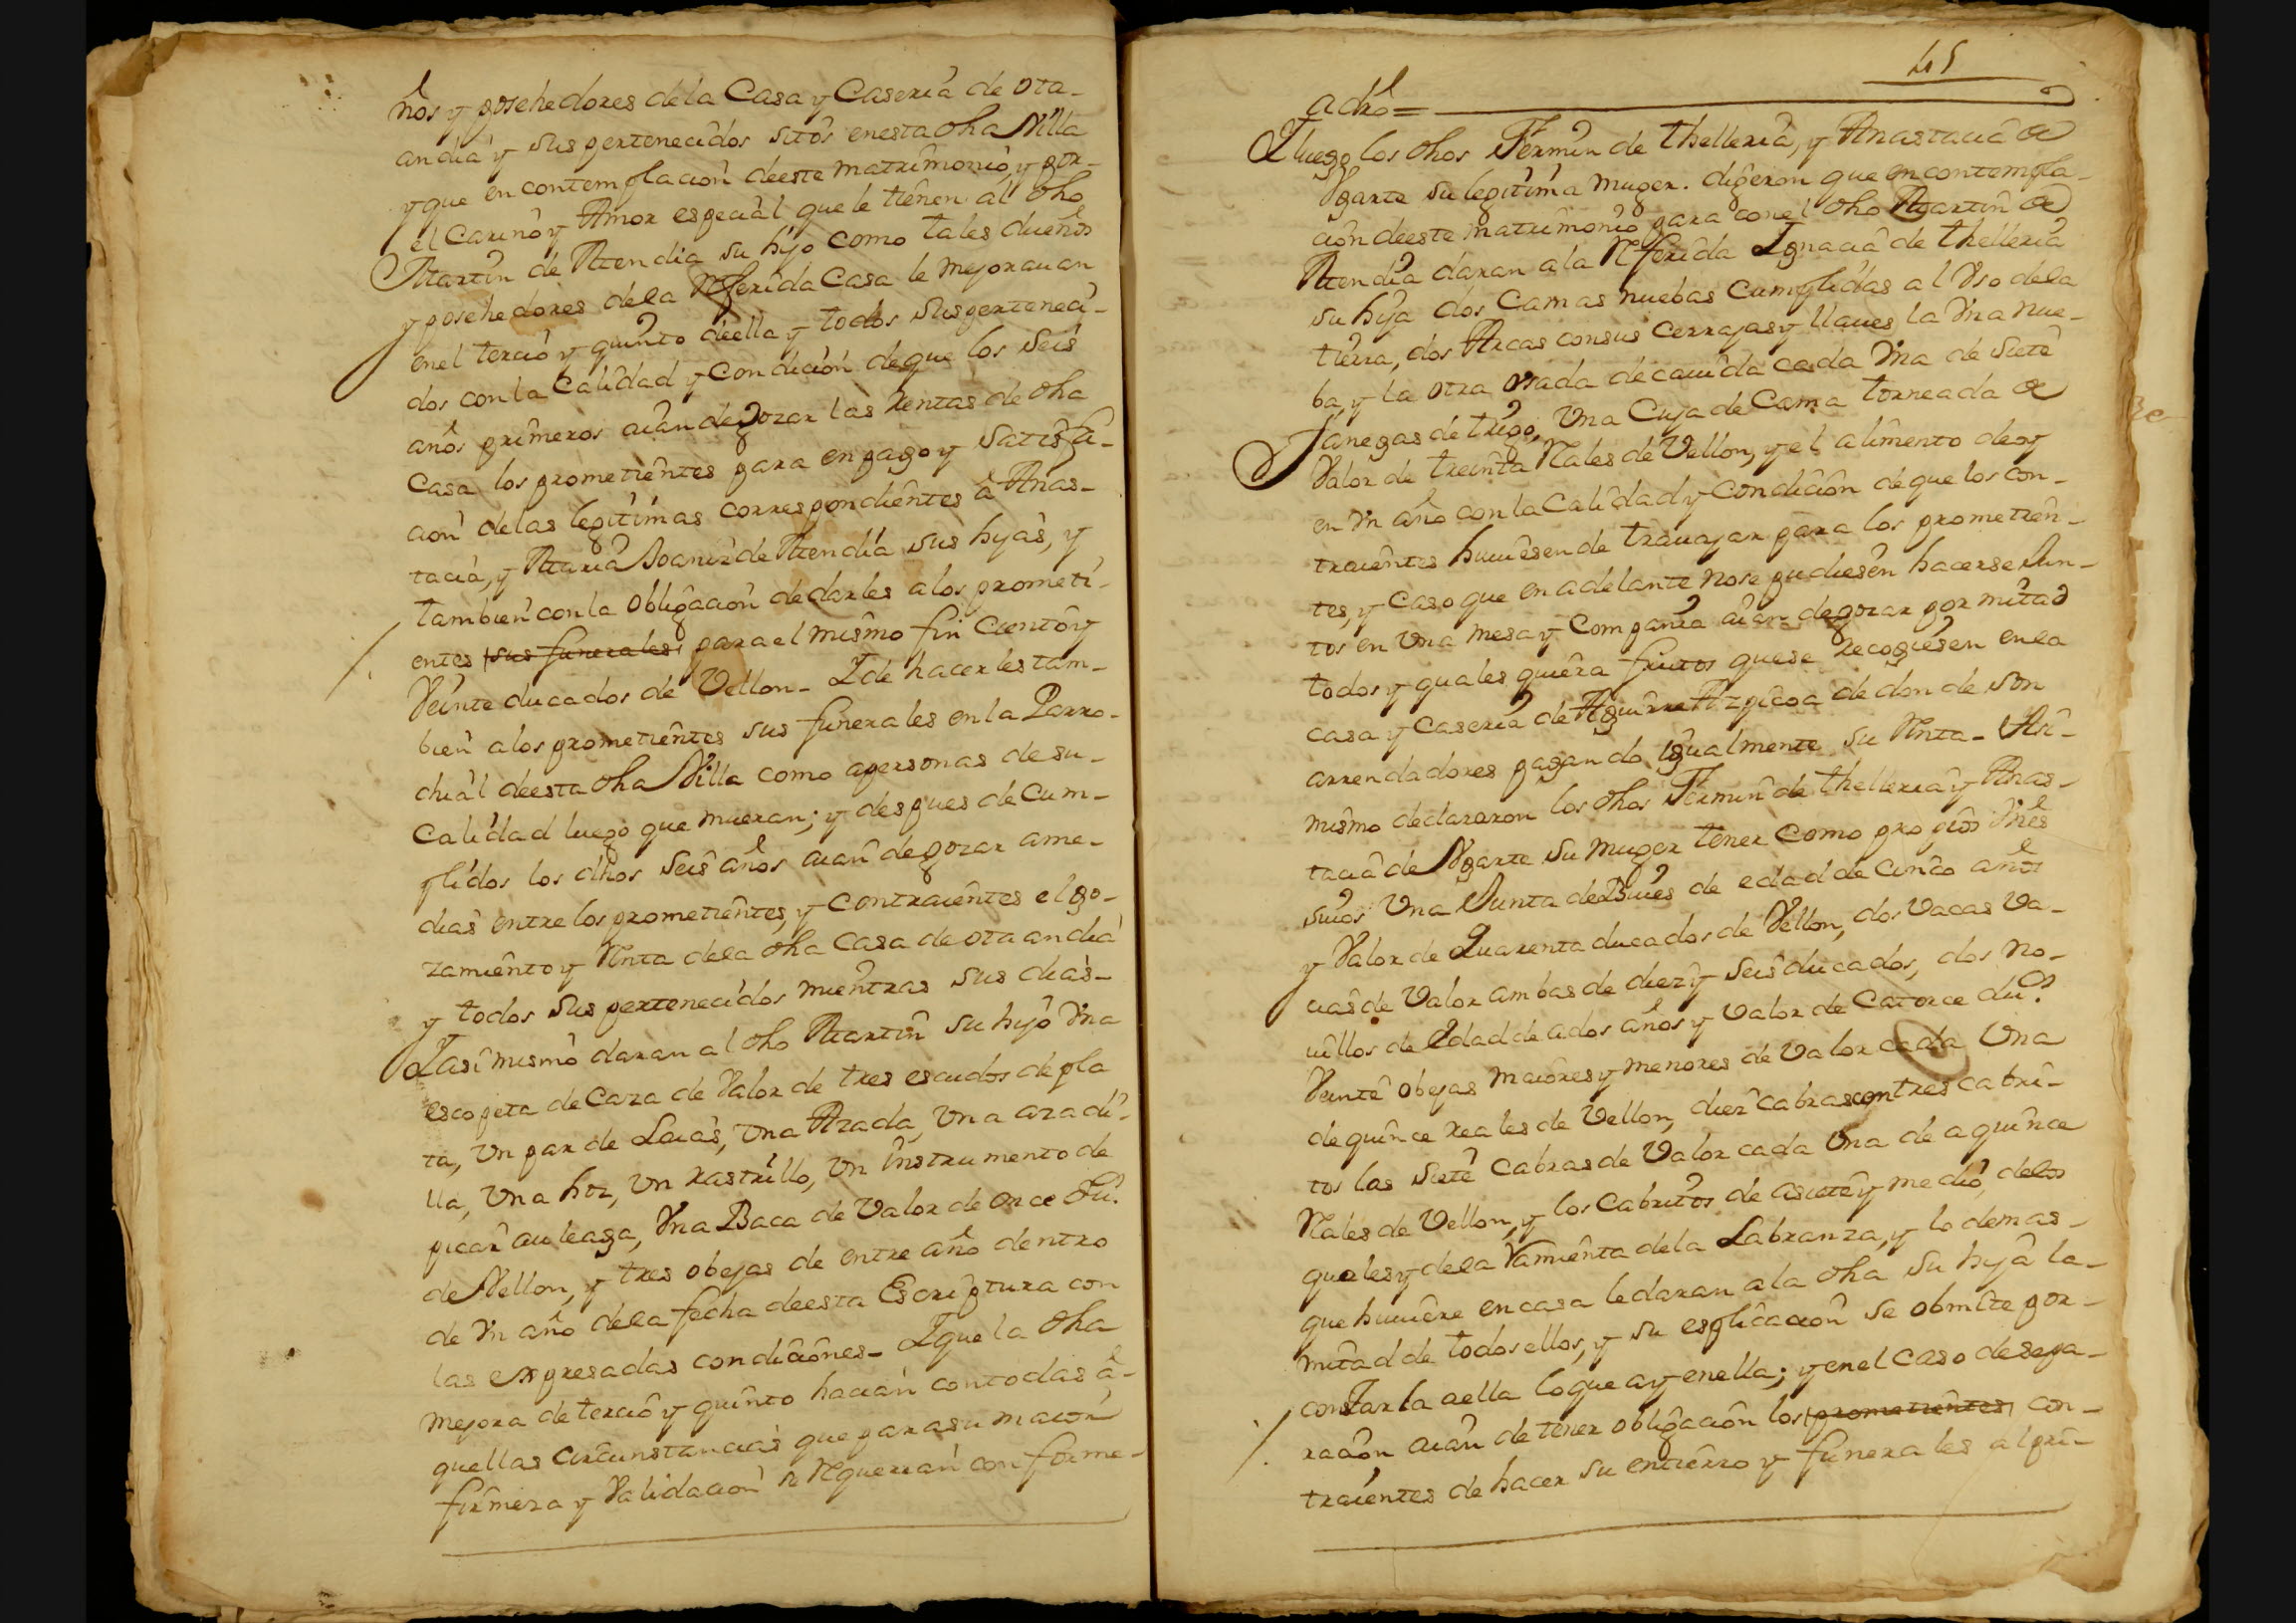 ños y posehedores dela Casa y Caseria de ota-
andia y sus pertenecidos sitos enesta dha Villa
y que en contemplacion deeste matrimonio, y por-
el Cariño y Amor especial que le tienen al dho
Martin de Mendia su hijo como tales dueños
y posehedores dela Referida Casa le mejorauan
enel tercio y quinto deella y todos susperteneci-
dos con la Calidad y Condicion deque los seis
años primeros aian degozar las Rentas de dha
Casa los prometientes para en pago y satisfa-
cion delas legitimas correspondientes â Anas-
tacia, y Maria Joaniz de Mendia sus hijas, y
tambien con la obligacion dedarles a los prometi-
entes sus funerales para el mismo fin Ciento y
Veinte ducados de Vellon- Y de hacerles tam-
bien a los prometientes sus funerales en la Parro-
chial deesta dha Villa como apersonas de su-
Calidad luego que mueran; y despues de Cum-
plidos los dhos seis años aian degozar ame-
dias entre los prometientes, y Contraientes el go-
zamiento y Renta dela dha Casa de ota andia
y todos sus pertenecidos mientras sus dias-
Y asi mismo daran al dho Martin su hijo Vna
escopeta de Caza de Valor de tres escudos de pla
ta, Vn par de Laias, Vna Azada, Vna azadi-
lla, Vna hoz, Vn rastrillo, Vn instrumento de
picar auleaga, Vna Baca de Valor de once Du.
de Vellon, y tres obejas de entre año dentro
de Vn año dela fecha deesta Escriptura con
las expresadas condiciones- Y que la dha
mejora de tercio y quinto hacian con todas a-
quellas circunstancias que para su maior
firmeza y Validacion se Requerian conforme-
45
a dro =
Y luego los dhos Fermin de thelleria, y Anastacia de
Vgarte su legitima muger. digeron que en contempla-
cion deeste matrimonio para con el dho Martin de
Mendia daran a la Referida Ignacia de thelleria
su hija dos Camas nuebas Cumplidas al Vso dela
tierra, dos Arcas con sus cerrajas y llaues, la Vna nue-
ba, y la otra Vsada de cauida cada Vna de siete
fanegas de trigo, Vna Cuja de Cama torneada de
Valor de treinta Rales de Vellon, y el alimento de oy
en Vn año con la Calidad y Condicion de que los con-
traientes huuiesen de trauajar para los prometien-
tes, y Caso que en adelante no se pudiesen hacerse Jun-
tos en Vna mesa y Compañia aian degozar por mitad
todos y quales quiera frutos que se recogiesen en la
casa y Caseria de Aguirre Azpicoa de donde son
arrendadores pagando igualmente su Renta- Asi-
mismo declararon los dhos Fermin de thelleria y Anas-
tacia de Vgarte su muger tener Como propios Vnes
suios Vna Junta de Bues de edad de Cinco años
y Valor de Quarenta ducados de Vellon, dos Vacas Va-
cias de Valor ambas de diez y seis ducados, dos no-
uillos de Edad de ados años y Valor de Catorce du.
Veinte obejas maiores y menores de Valor cada Vna
de quince reales de Vellon, diez cabras con tres cabri-
tos las siete Cabras de Valor cada Vna de a quince
Rales de Vellon, y los Cabritos de a siete y medio, delos
quales y dela Vamienta dela Labranza, y lo demas-
que huuiere en casa le daran a la dha su hija la-
mitad de todos ellos, y su esplicacion se obmite por-
constar la aella lo que ay enella; y en el Caso de sepa-
racion aian de tener obligacion los prometientes con-
traientes de hacer su entierro y funerales al pri-